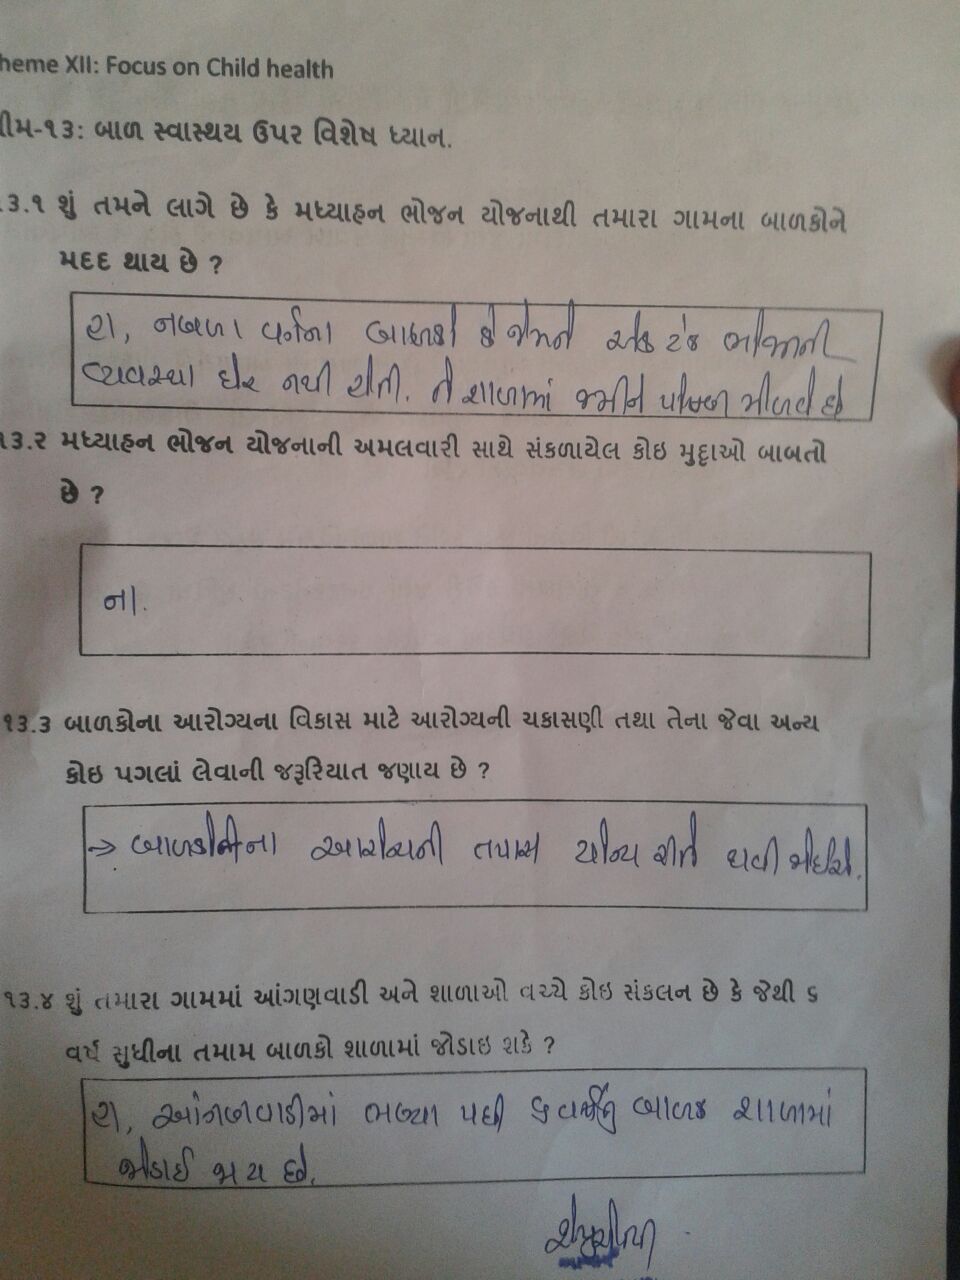 heme XII: Focus on Child health
ીમ-૧૩: બાળ સ્વાસ્થય ઉપર વિશેષ ધ્યાન.
૩.૧ શું તમને લાગે છે કે મધ્યાહન ભોજન યોજનાથી તમારા ગામના બાળકોને
મદદ થાય છે ?
હા, નબળા વર્ગના બાળકો કે જેમને એક ટંક ભોજનની
વ્યવસ્થા ઘેર નથી હોતી. તે શાળામાં જમીને પોષણ મેળવે છે
૧૩.૨ મધ્યાહન ભોજન યોજનાની અમલવારી સાથે સંકળાયેલ કોઇ મુદ્દાઓ બાબતો
છે ?
ના.
૧૩.૩ બાળકોના આરોગ્યના વિકાસ માટે આરોગ્યની ચકાસણી તથા તેના જેવા અન્ય
કોઇ પગલાં લેવાની જરૂરિયાત જણાય છે ?
→ બાળકોના આરોગ્યની તપાસ યોગ્ય રીતે થવી જોઈએ.
૧૩.૪ શું તમારા ગામમાં આંગણવાડી અને શાળાઓ વચ્ચે કોઇ સંકલન છે કે જેથી ૬
વર્ષ સુધીના તમામ બાળકો શાળામાં જોડાઇ શકે ?
હા, આંગણવાડીમાં ભણ્યા પછી ૬ વર્ષનું બાળક શાળામાં
જોડાઈ જાય છે.